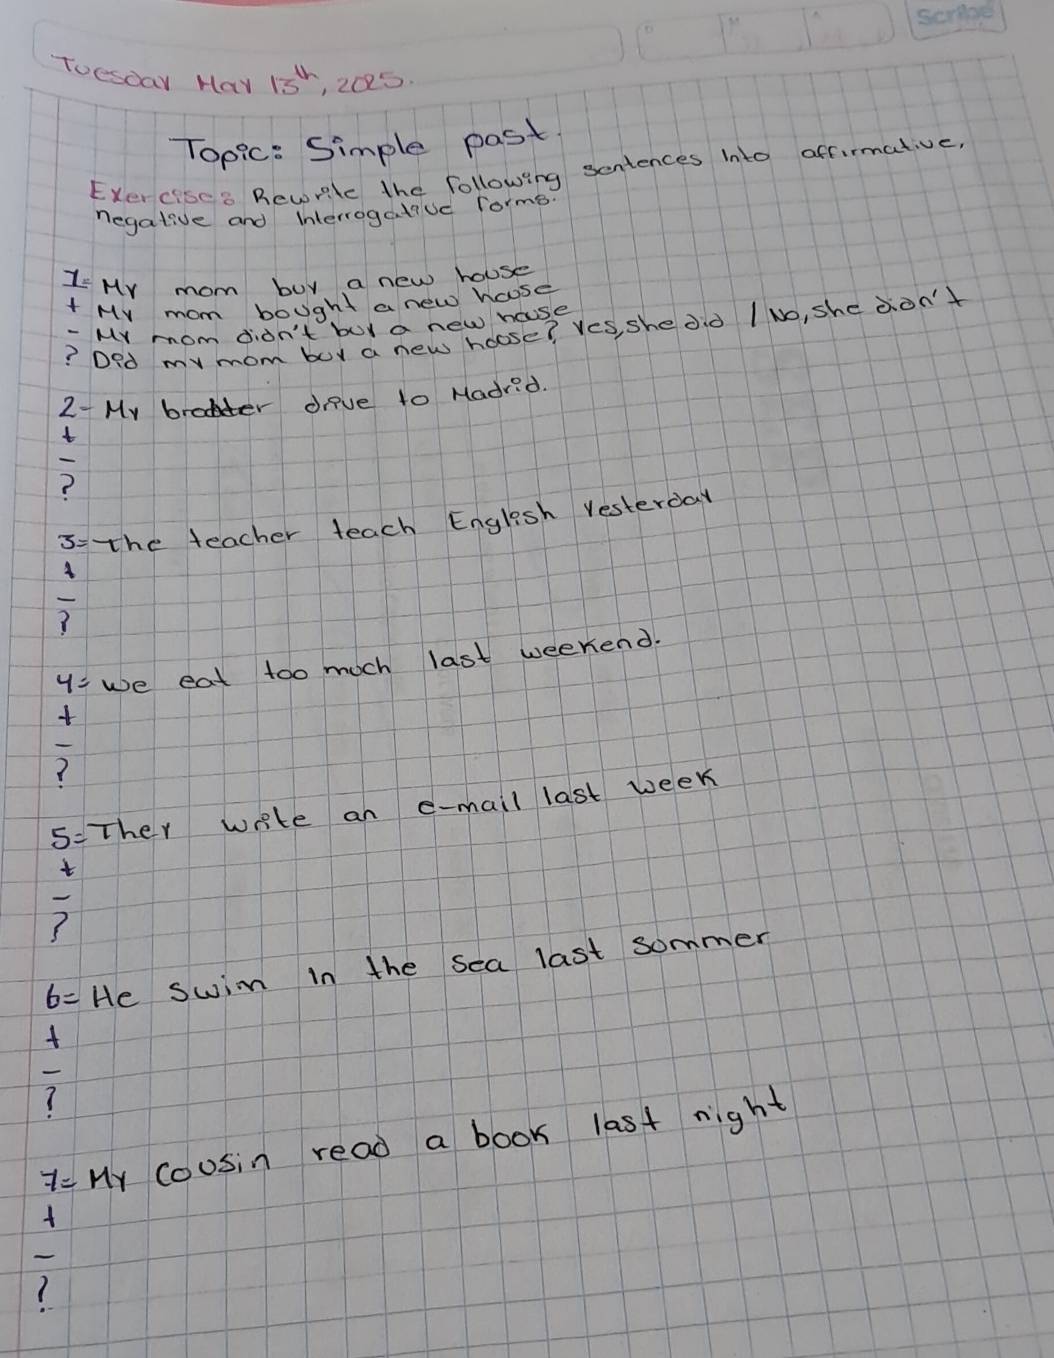 Scribe
Tuesday May 13th, 2025.
Topic: Simple past.
Exercise: Rewrite the following sentences into affirmative,
negative and interrogative forms.
1= My mom buy a new house
+ My mom bought a new house
- My mom didn't buy a new house
? Did my mom buy a new house? Yes, she did / No, she didn't
2- My brother drive to Madrid.
+
-
?
3= the teacher teach English yesterday
+
-
?
4= we eat too much last weekend.
+
-
?
5= They write an e-mail last week
+
-
?
6= He swim in the sea last sommer
+
-
?
7= My cousin read a book last night
+
-
?